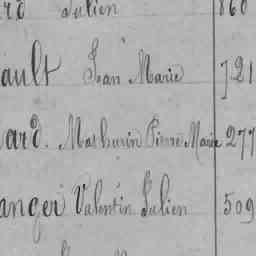 rd Julien 860
ault Jean Marie 721
ard. Mathurin Pierre Marie 277
anger Valentin Julien 509